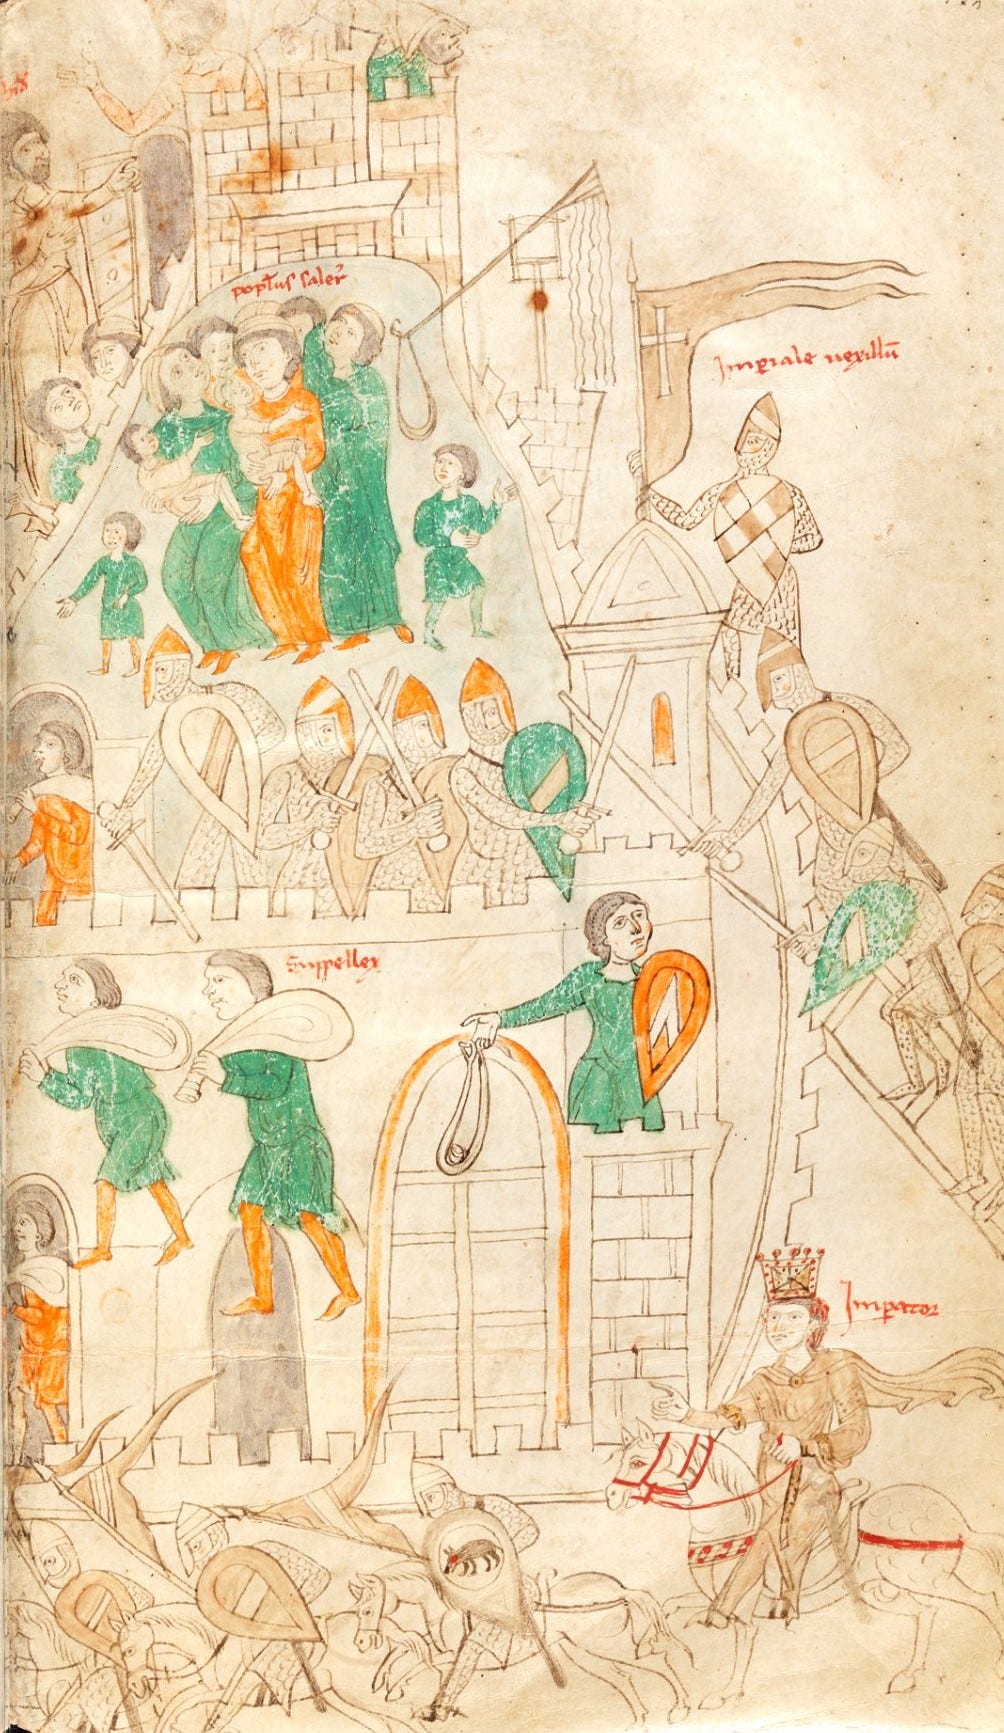 popl'us saler'
Imperiale uexillu̅
Suppellex
Imperator